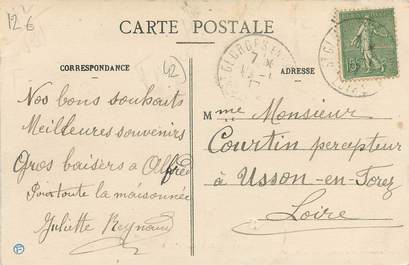 12 €
CARTE POSTALE
CORRESPONDANCE
42
ADRESSE
Nos bons souhaits
Meilleures souvenirs
Gros baisers a Alfred
Pour toute la maisonnée
Juliette Reynaud
Mme Monsieur
Courtin percepteur
à Usson-en-Forez
Loire
ST GEORGES
7
15